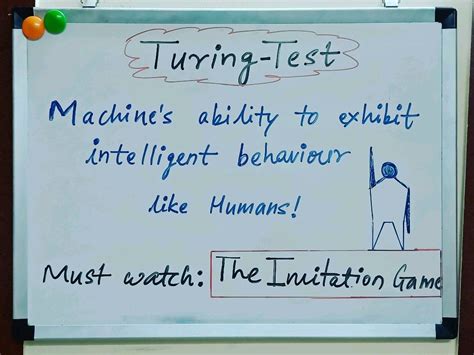 Turing-Test
Machine's ability to exhibit
intelligent behaviour
like Humans!
Must watch: The Imitation Game